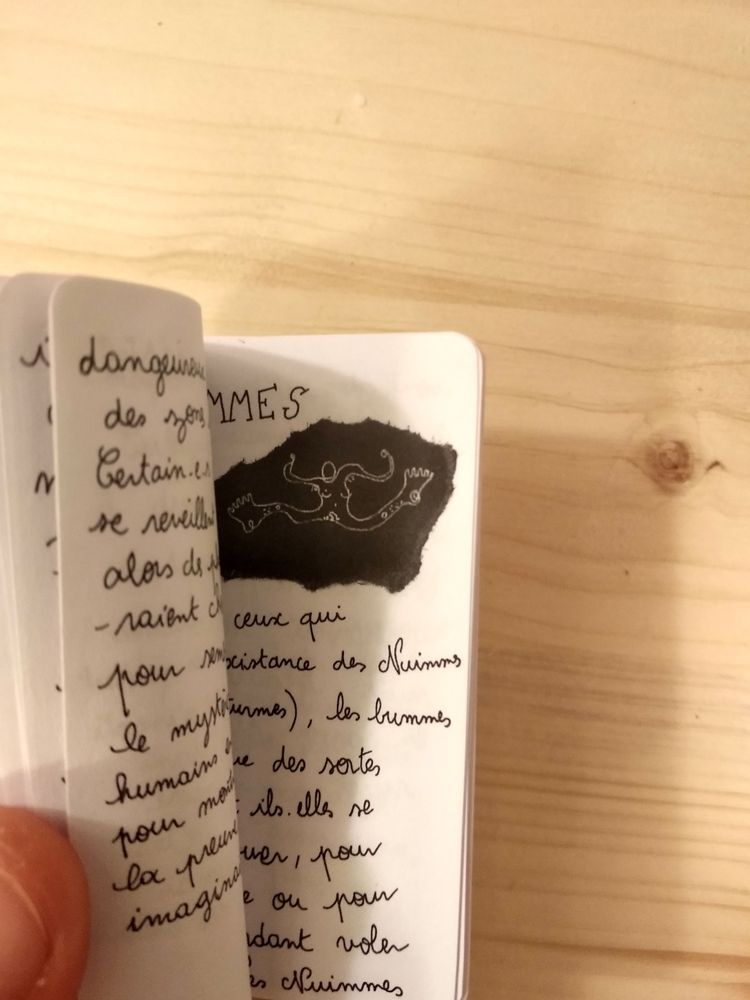 dangeureu
des zon
Certain.e.s
se reveillen
alors de p
-raient c
pour sem
le mystè
humains e
pour mon
la preuv
imagina
MMES
ceux qui
existance des Nuimmes
urmes), les bummes
ue des sortes
ils.elles se
uer, pour
e ou pour
ndant voler
les Nuimmes